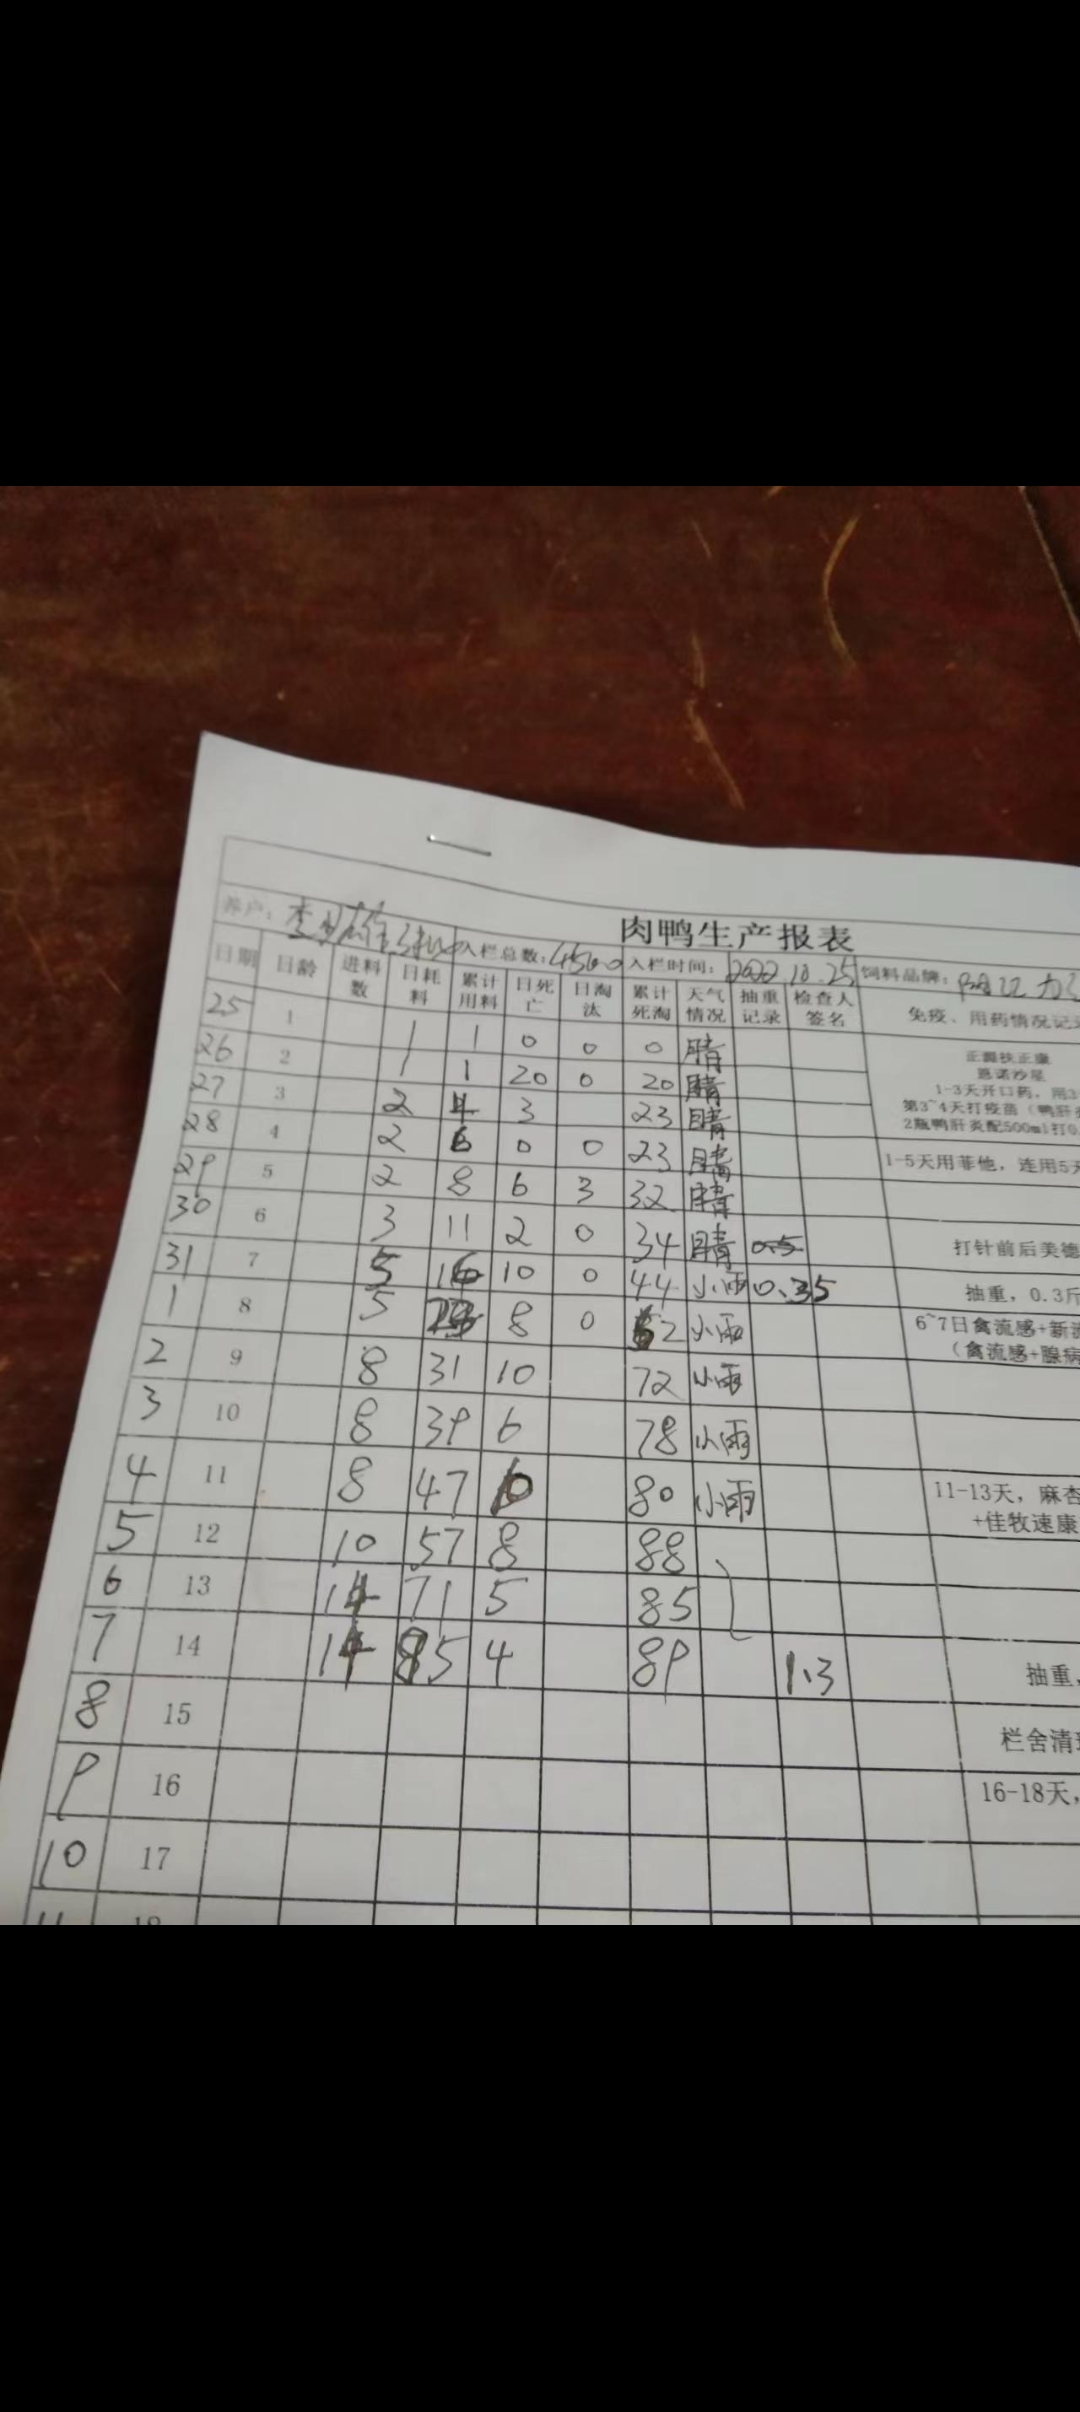 肉鸭生产报表
养户: 入栏总数: 4500 入栏时间: 2022.10.25 饲料品牌:
日期 日龄 进料数 日耗料 累计用料 日死亡 日淘汰 累计死淘 天气情况 抽重记录 检查人签名 免疫、用药情况记
25 1 1 1 0 0 0 晴
正 扶正康
恩诺沙星
26 2 1 1 20 0 20 晴
1-3天开口药,用3
27 3 2 4 3 23 晴
第3~4天打疫苗(鸭肝
2瓶鸭肝炎配500ml打0.
28 4 2 6 0 0 23 晴 1-5天用菲他,连用5天
29 5 2 8 6 3 32 晴
30 6 3 11 2 0 34 晴 0.5 打针前后美德
31 7 5 16 10 0 44 小雨 0.35 抽重,0.3斤
1 8 5 8 0 62 小雨 6~7日禽流感+新流
(禽流感+腺病
2 9 8 31 10 72 小雨
3 10 8 39 6 78 小雨
4 11 8 47 80 小雨 11-13天,麻杏
+佳牧速康
5 12 10 57 8 88
6 13 14 71 5 85
7 14 14 85 4 89 1.3 抽重,
8 15 栏舍清
9 16 16-18天,
10 17